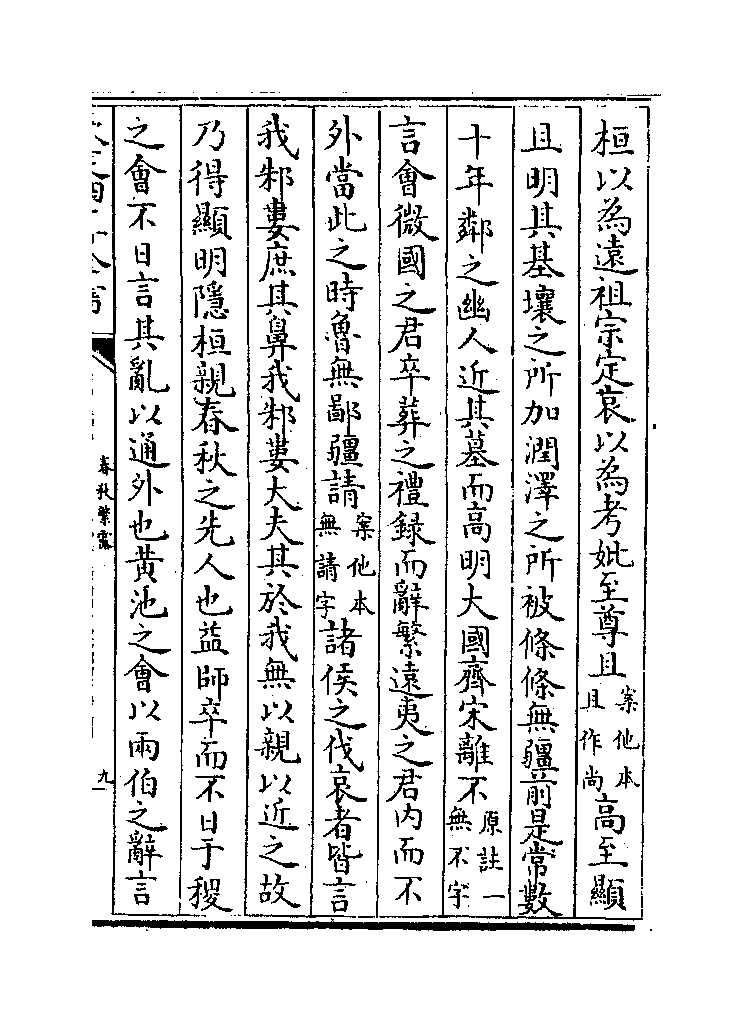 桓以為遠祖宗定哀以為考妣至尊且案他本且作尚高至顯
且明其基壤之所加潤澤之所被條條無疆前是常數
十年鄰之幽人近其墓而高明大國齊宋離不原註一無不字
言會微國之君卒葬之禮録而辭繁遠夷之君内而不
外當此之時魯無鄙疆請案他本無請字諸侯之伐哀者皆言
我邾婁庶其鼻我邾婁大夫其於我無以親以近之故
乃得顯明隱桓親春秋之先人也益師卒而不日于稷
之會不日言其亂以通外也黄池之會以兩伯之辭言
春秋繁露
九